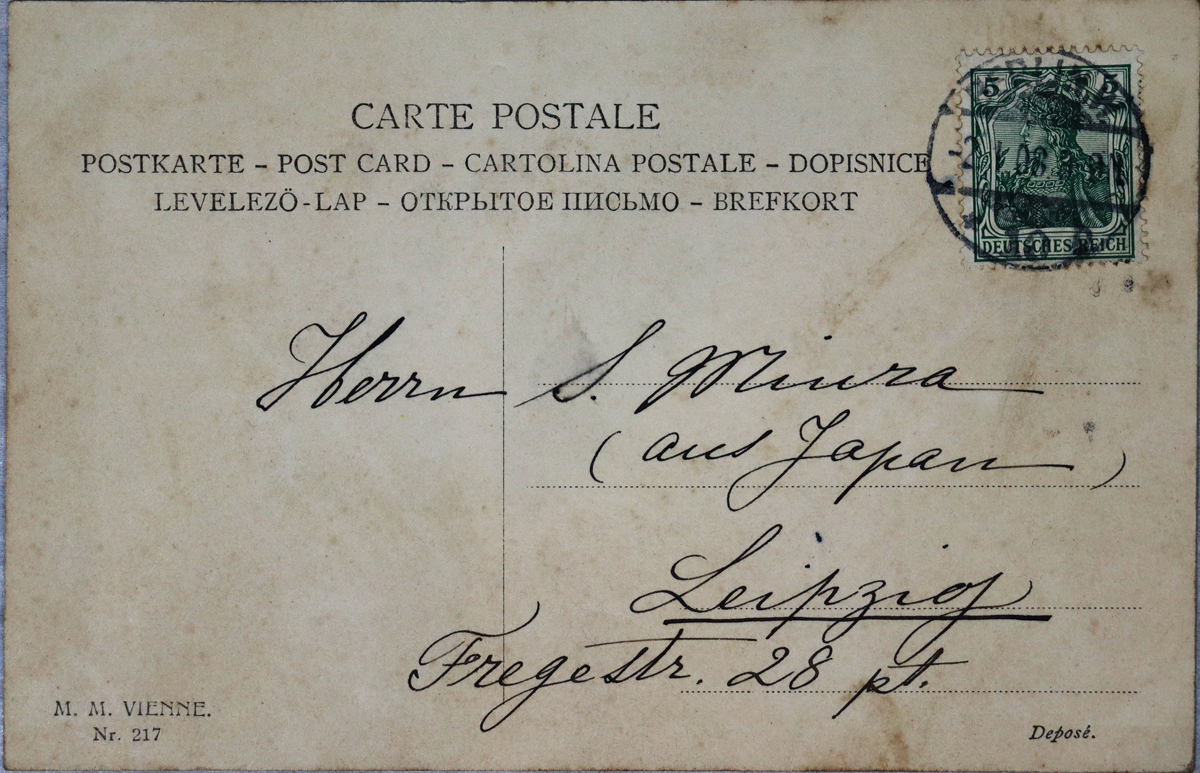 CARTE POSTALE
POSTKARTE – POST CARD – CARTOLINA POSTALE – DOPISNICE
LEVELEZÖ-LAP – ОТКРЫТОЕ ПИСЬМО – BREFKORT
5 5
DEUTSCHES REICH
Herrn S. Miura
(aus Japan)
Leipzig
Fregestr. 28 pt.
M. M. VIENNE.
Nr. 217
Deposé.